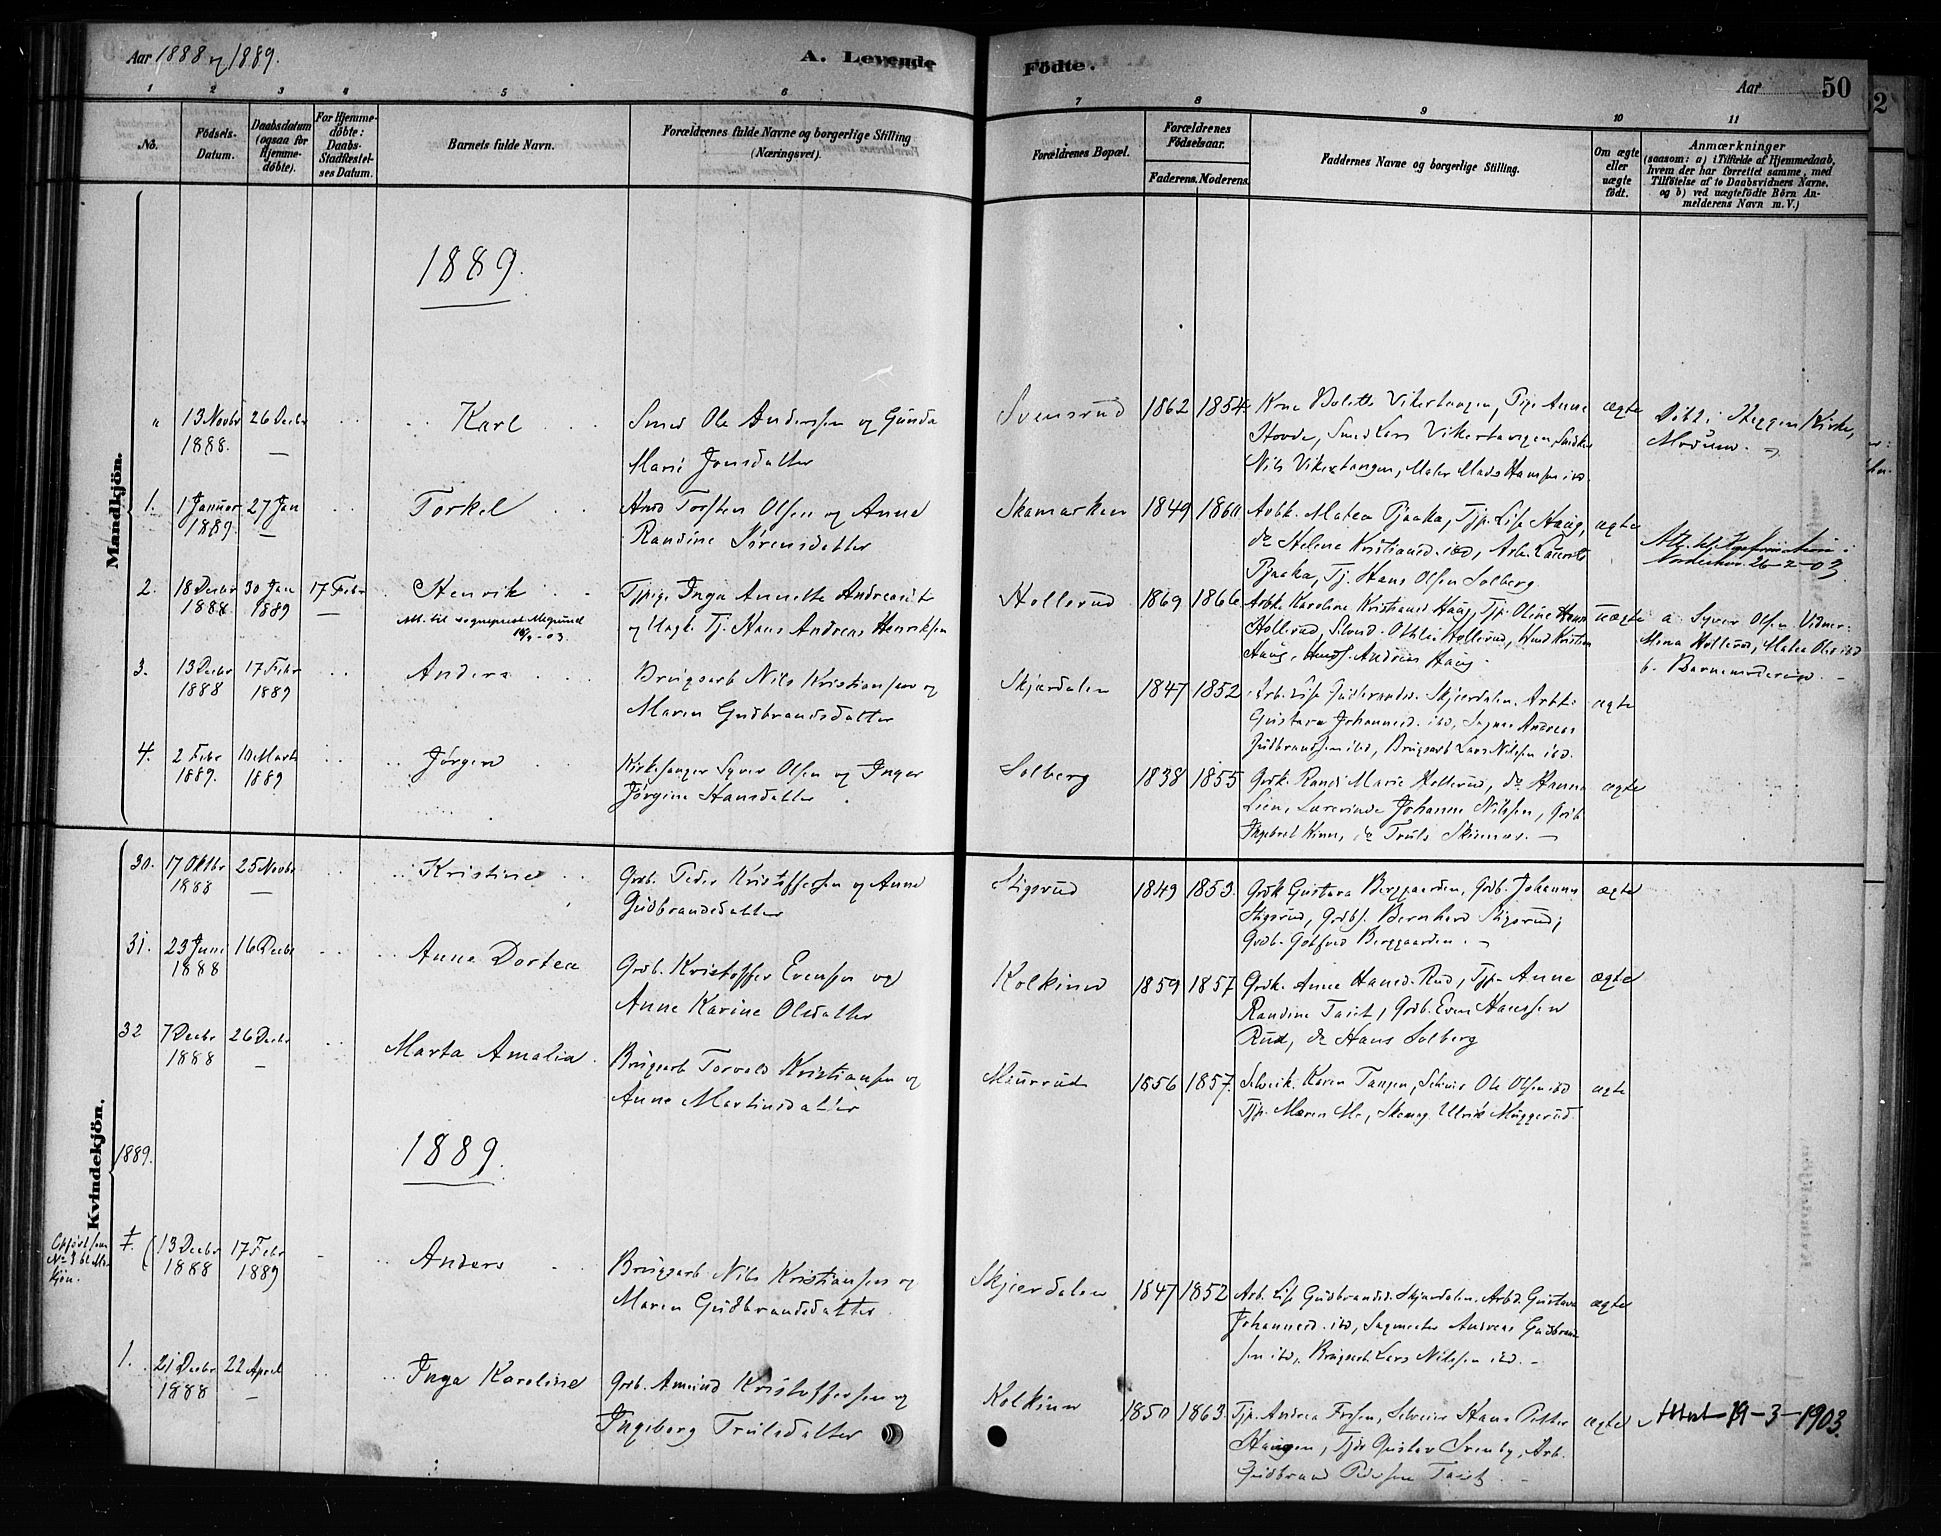 Aar 1888 og 1889.
A. Levende Födte.
Aar 50
1 2 3 4 5 6 7 8 9 10 11
No.
Födsels-Datum.
Daabsdatum (ogsaa for Hjemmedöbte).
For Hjemmedöbte: Daabs-Stadfæstelses Datum.
Barnets fulde Navn.
Forældrenes fulde Navne og borgerlige Stilling (Næringsvei).
Forældrenes Bopæl.
Forældrenes Födselsaar.
Faderens. Moderens.
Faddernes Navne og borgerlige Stilling.
Om ægte eller uægte födt.
Anmærkninger
(saasom: a) i Tilfælde af Hjemmedaab, hvem der har forrettet samme, med Tilföielse af to Daabsvidners Navne, og b) ved uægtefödte Börn Anmelderens Navn m. V.)
Mandkjön.
1889.
" 13 Novbr 1888. 26 Decbr — Karl
Smed Ole Anderssen og Gunda
Marie Jonsdatter
Svensrud 1862 1854
Kone Bolette Vikertangen, Pige Anne
Hovde, Smed Lars Vikertangen,
Nils Vikertangen, Maler Mads Hansen ibd.
ægte
Døbt i Heggen Kirke,
Modum.
1. 1 Januar 1889. 27 Jan — Torkel
Torsten Olsen og Anne
Randine Sørensdatter
Skamarken 1849 1860
Arbk. Matea Tjaaka, Tjp. Lise Haug,
do Helene Kristiansd. ibd, Arb. Laurits
Tjaaka, Tj. Hans Olsen Solberg.
ægte
26-2-03
2. 18 Decbr 1888 30 Jan 1889 17 Febr — Henrik
Att. til sogneprest
Tjpige Inga Annette Andreasd.
og Ungk. Tj. Hans Andreas Henriksen
Hollerud 1869 1866
Arbk. Karoline Kristiansd Haug, Tjp. Oline
Hollerud, Othilie Hollerud, Kristian
Haug, Andreas Haug.
uægte
a. Syver Olsen. Vidner:
Mina Hollerud, Matea Olsen ibd
b. Barnemoderen.
3. 13 Decbr 1888 17 Febr 1889 Anders
Brugsarb Nils Kristiansen og
Maren Gudbrandsdatter
Skjærdalen 1847 1852
Arb. Lise Gudbrandsd. Skjærdalen. Arbk.
Gustava Johannesd. ibd, Andreas
Gudbrandsen ibd, Brugsarb Lars Nilsen ibd.
ægte
4. 2 Febr 1889. 10 Marts 1889 Jørgen
Kirkesanger Syver Olsen og Inger
Jørgine Hansdatter.
Solberg 1838 1855
Gbrk. Randi Marie Hollerud, do Hanna
Lien, Lærerinde Johanne Nilssen, Grdb.
do Truls
ægte
Kvindekjön.
30. 17 Oktbr 1888 25 Novbr — Kristine
Grdb. Peder Kristoffersen og Anne
Gudbrandsdatter
Stigsrud 1849 1853.
Grdk Gustava Berggaarden, Grdb. Johannes
Stigsrud, Grdbs. Bernhard Stigsrud,
Grdb. Gotfred Berggaarden.
ægte
31. 23 Juni 1888 16 Decbr Anne Dortea
Grdb. Kristoffer Evensen og
Anne Karine Olsdatter
Kolkind 1859 1857
Grdk. Anne Hansd. Rud, Tjp. Anne
Randine Grdb. Even Hanssen
Rud, do Hans Solberg
ægte
32 7 Decbr 1888 26 Decbr — Marta Amalia
Brugsarb Torvald Kristiansen og
Anne Martinsdatter
Muurrud 1856 1857.
Selveik. Karen Tangen, Selveier Ole Olsen ibd
Tjp. Maren Mo, Ulrik Muggerud
ægte
1889. 1889.
Opført som No 3 bl. kjøn.
13 Decbr 1888 17 Febr 1889 Anders
Brugsarb Nils Kristiansen og
Maren Gudbrandsdatter
Skjærdalen 1847 1852
Arb. Lise Gudbrandsd. Skjærdalen. Arbk. Gustava
Johannesd. ibd, Sagmester Andreas Gudbrand
sen ibd, Brugsarb. Lars Nilssen ibd.
ægte
1. 21 Decbr 1888 22 April — Inga Karoline
Grdb. Amund Kristoffersen og
Ingeborg Trulsdatter
Kolkinn 1850 1863.
Tjp. Andrea Selveier Hans Petter
Haugen, Gustav Svenby, Arb.
Gudbrand Pedersen
ægte
Attest 19-3-1903.